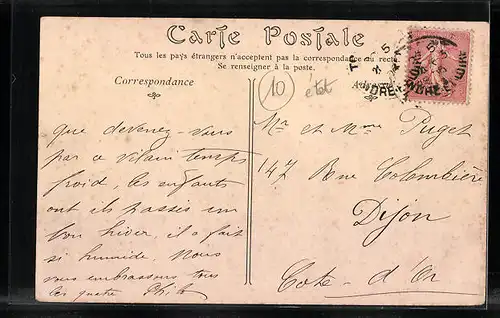 Carte Postale
Tous les pays étrangers n'acceptent pas la correspondance au recto
Se renseigner à la poste.
Correspondance
10
état
INDRE-ET-LOIRE
que devenez-vous
par ce vilain temps
froid, les enfants
ont ils passés un
bon hiver, il a fait
si humide. Nous
vous embrassons tous
les quatre
Mr et Mme Puget
147 Rue Colombière
Dijon
Cote-d'Or